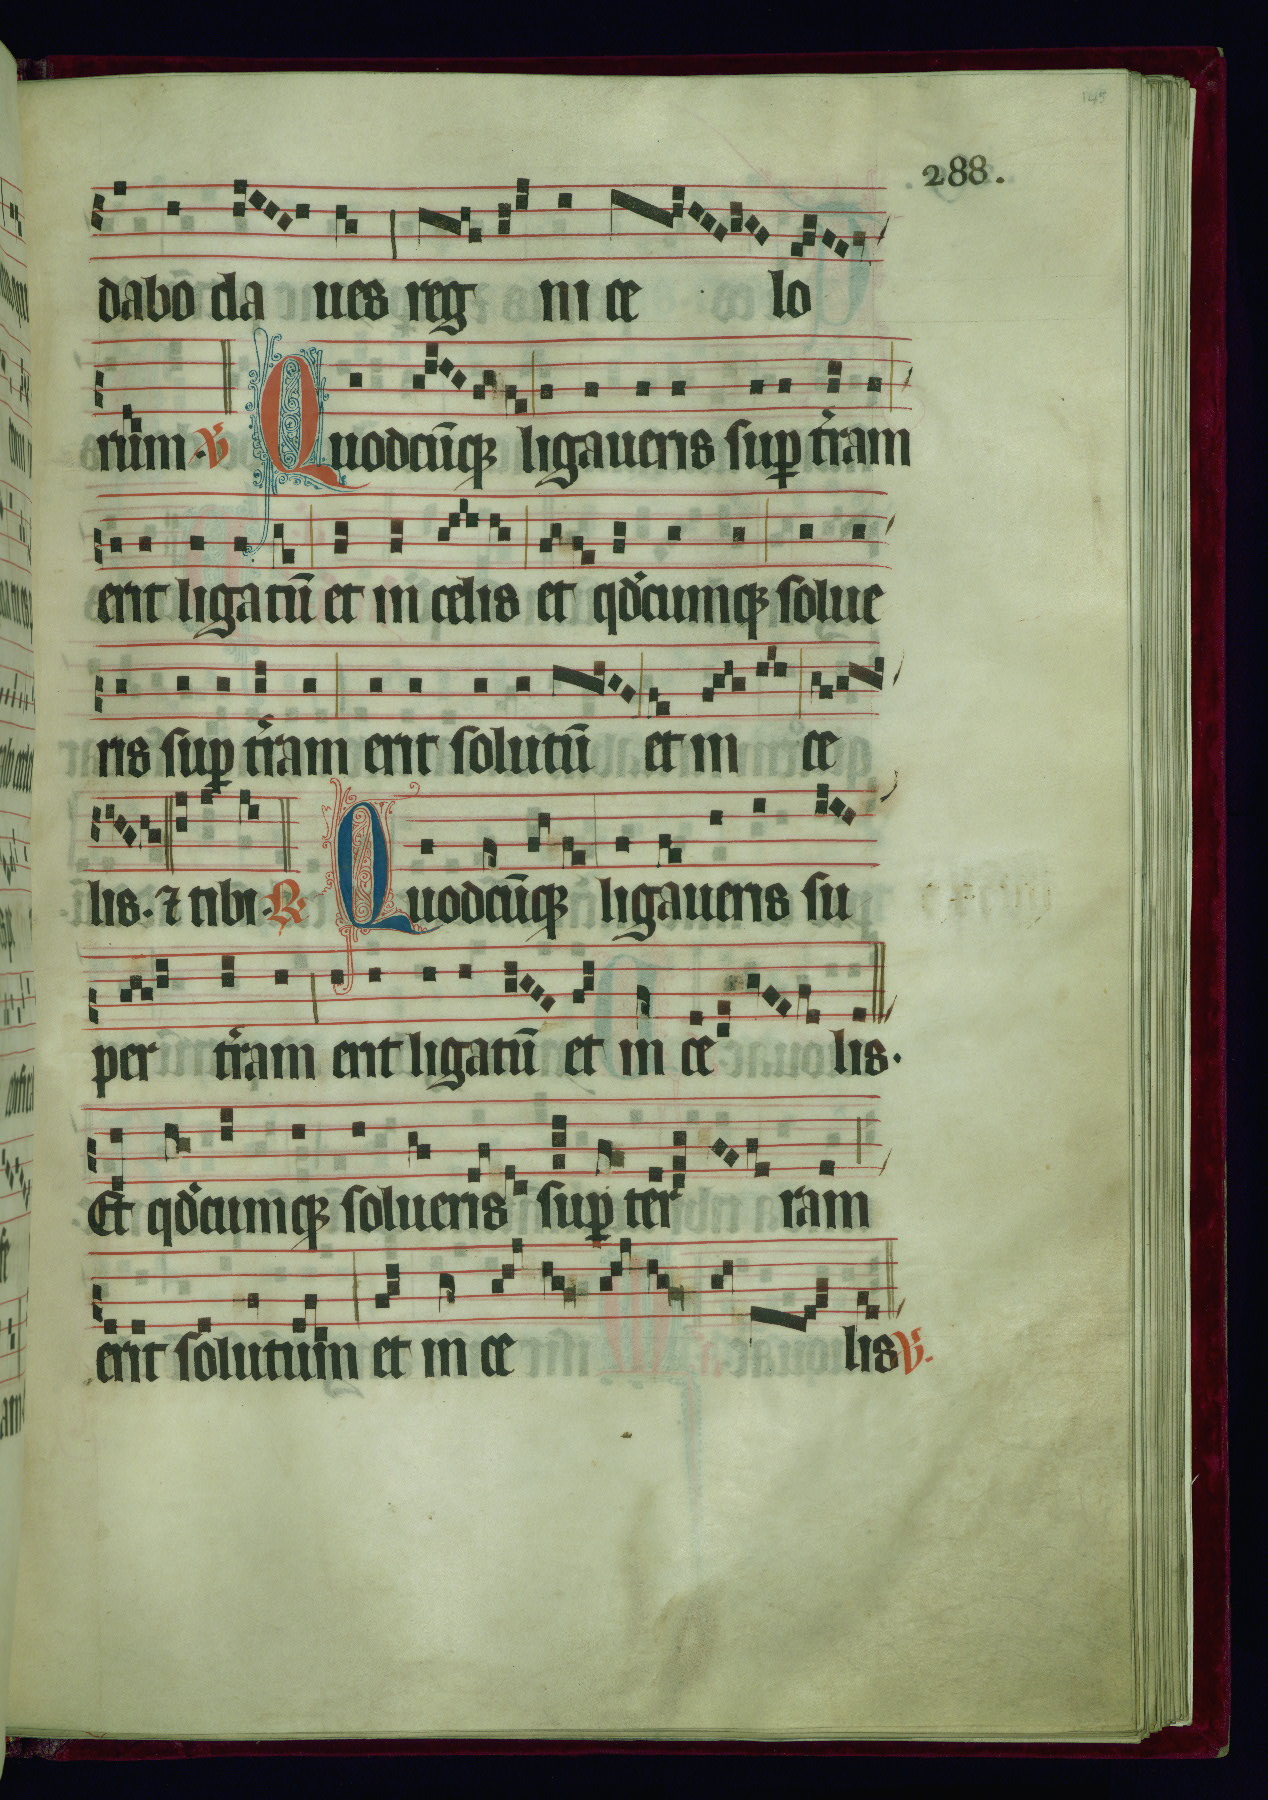 145
288.
dabo cla ues reg ni ce lo
rum. V Quodcūqꝫ ligaueris suꝑ t̄ram
erit ligatū et in celis et qđcumqꝫ solue
ris suꝑ t̄ram erit solutū et in ce
lis. ⁊ tibi. R Quodcūqꝫ ligaueris su
per t̄ram erit ligatū et in ce lis.
Et qđcumqꝫ solueris suꝑ ter ram
erit solutum et in ce lis V.